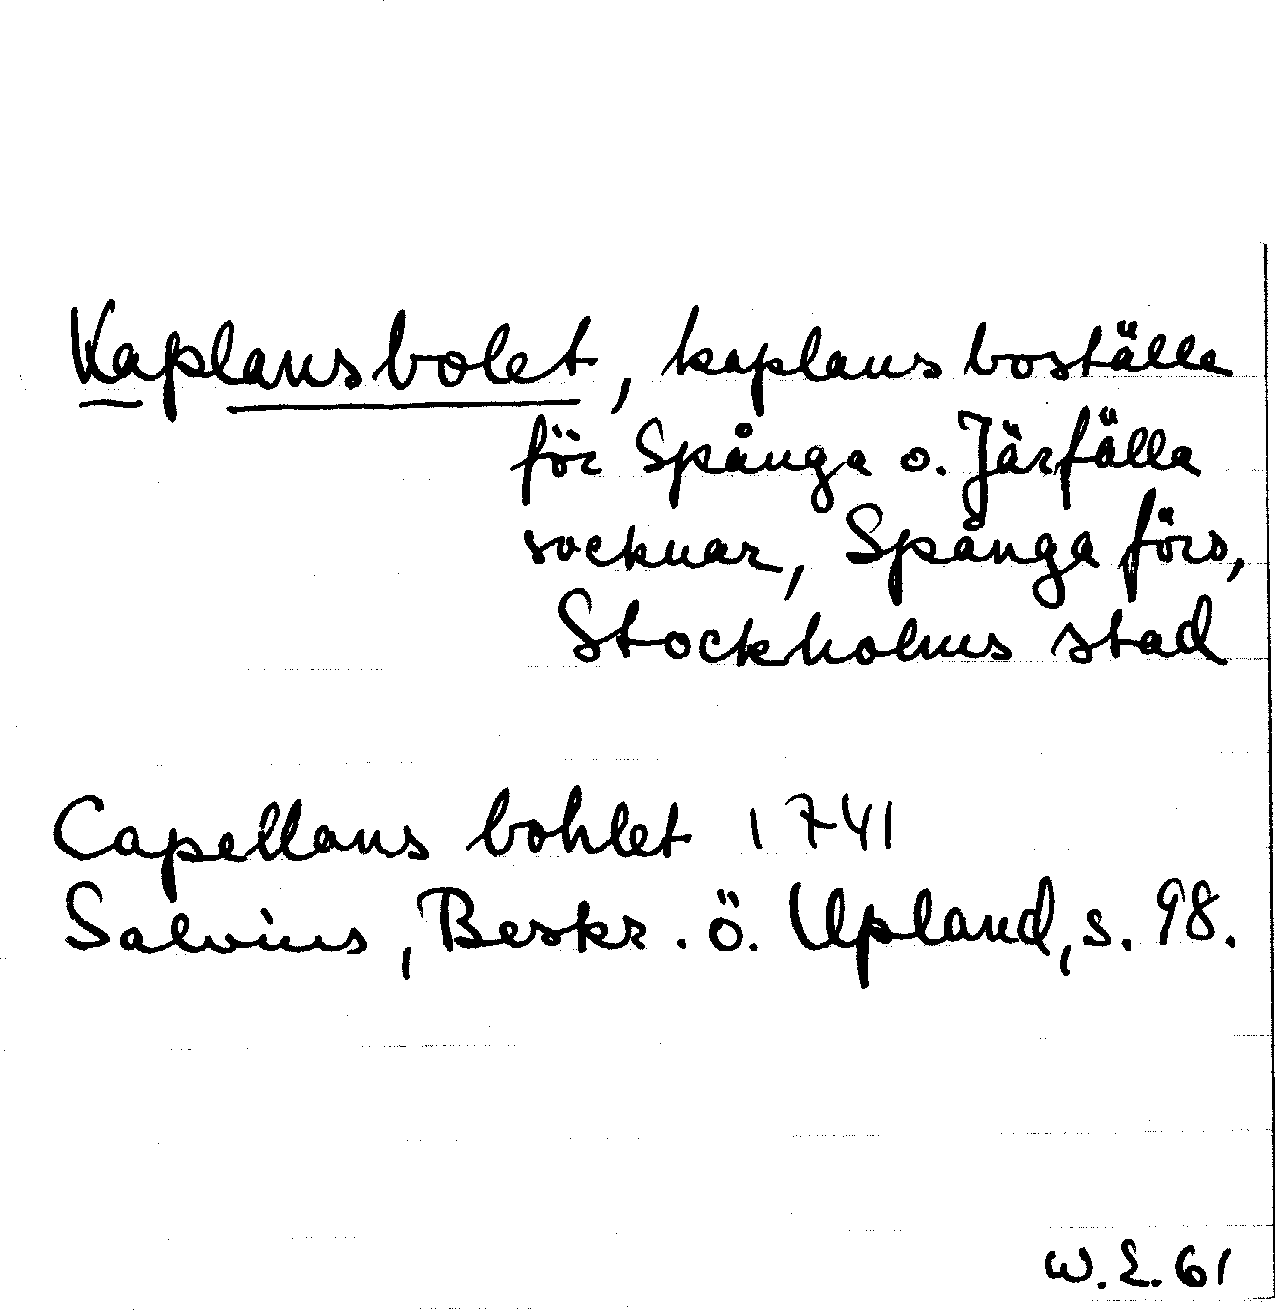 Kaplansbolet, kaplansboställe
för Spånga o. Järfälla
socknar, Spånga förs,
Stockholms stad
Capellans bohlet 1741
Salvius, Beskr. ö. Upland, s. 98.
W. E. 61